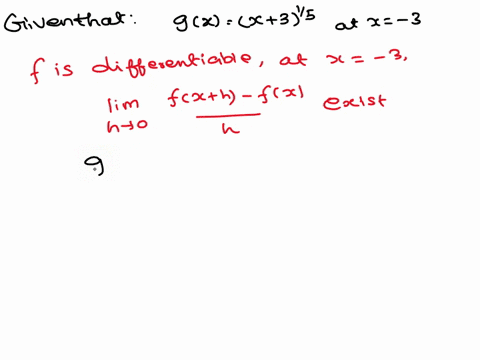 Given that: g(x) = (x+3)^{1/5} at x = -3
f is differentiable, at x = -3,
lim h→0 f(x+h) - f(x) / h exist
g